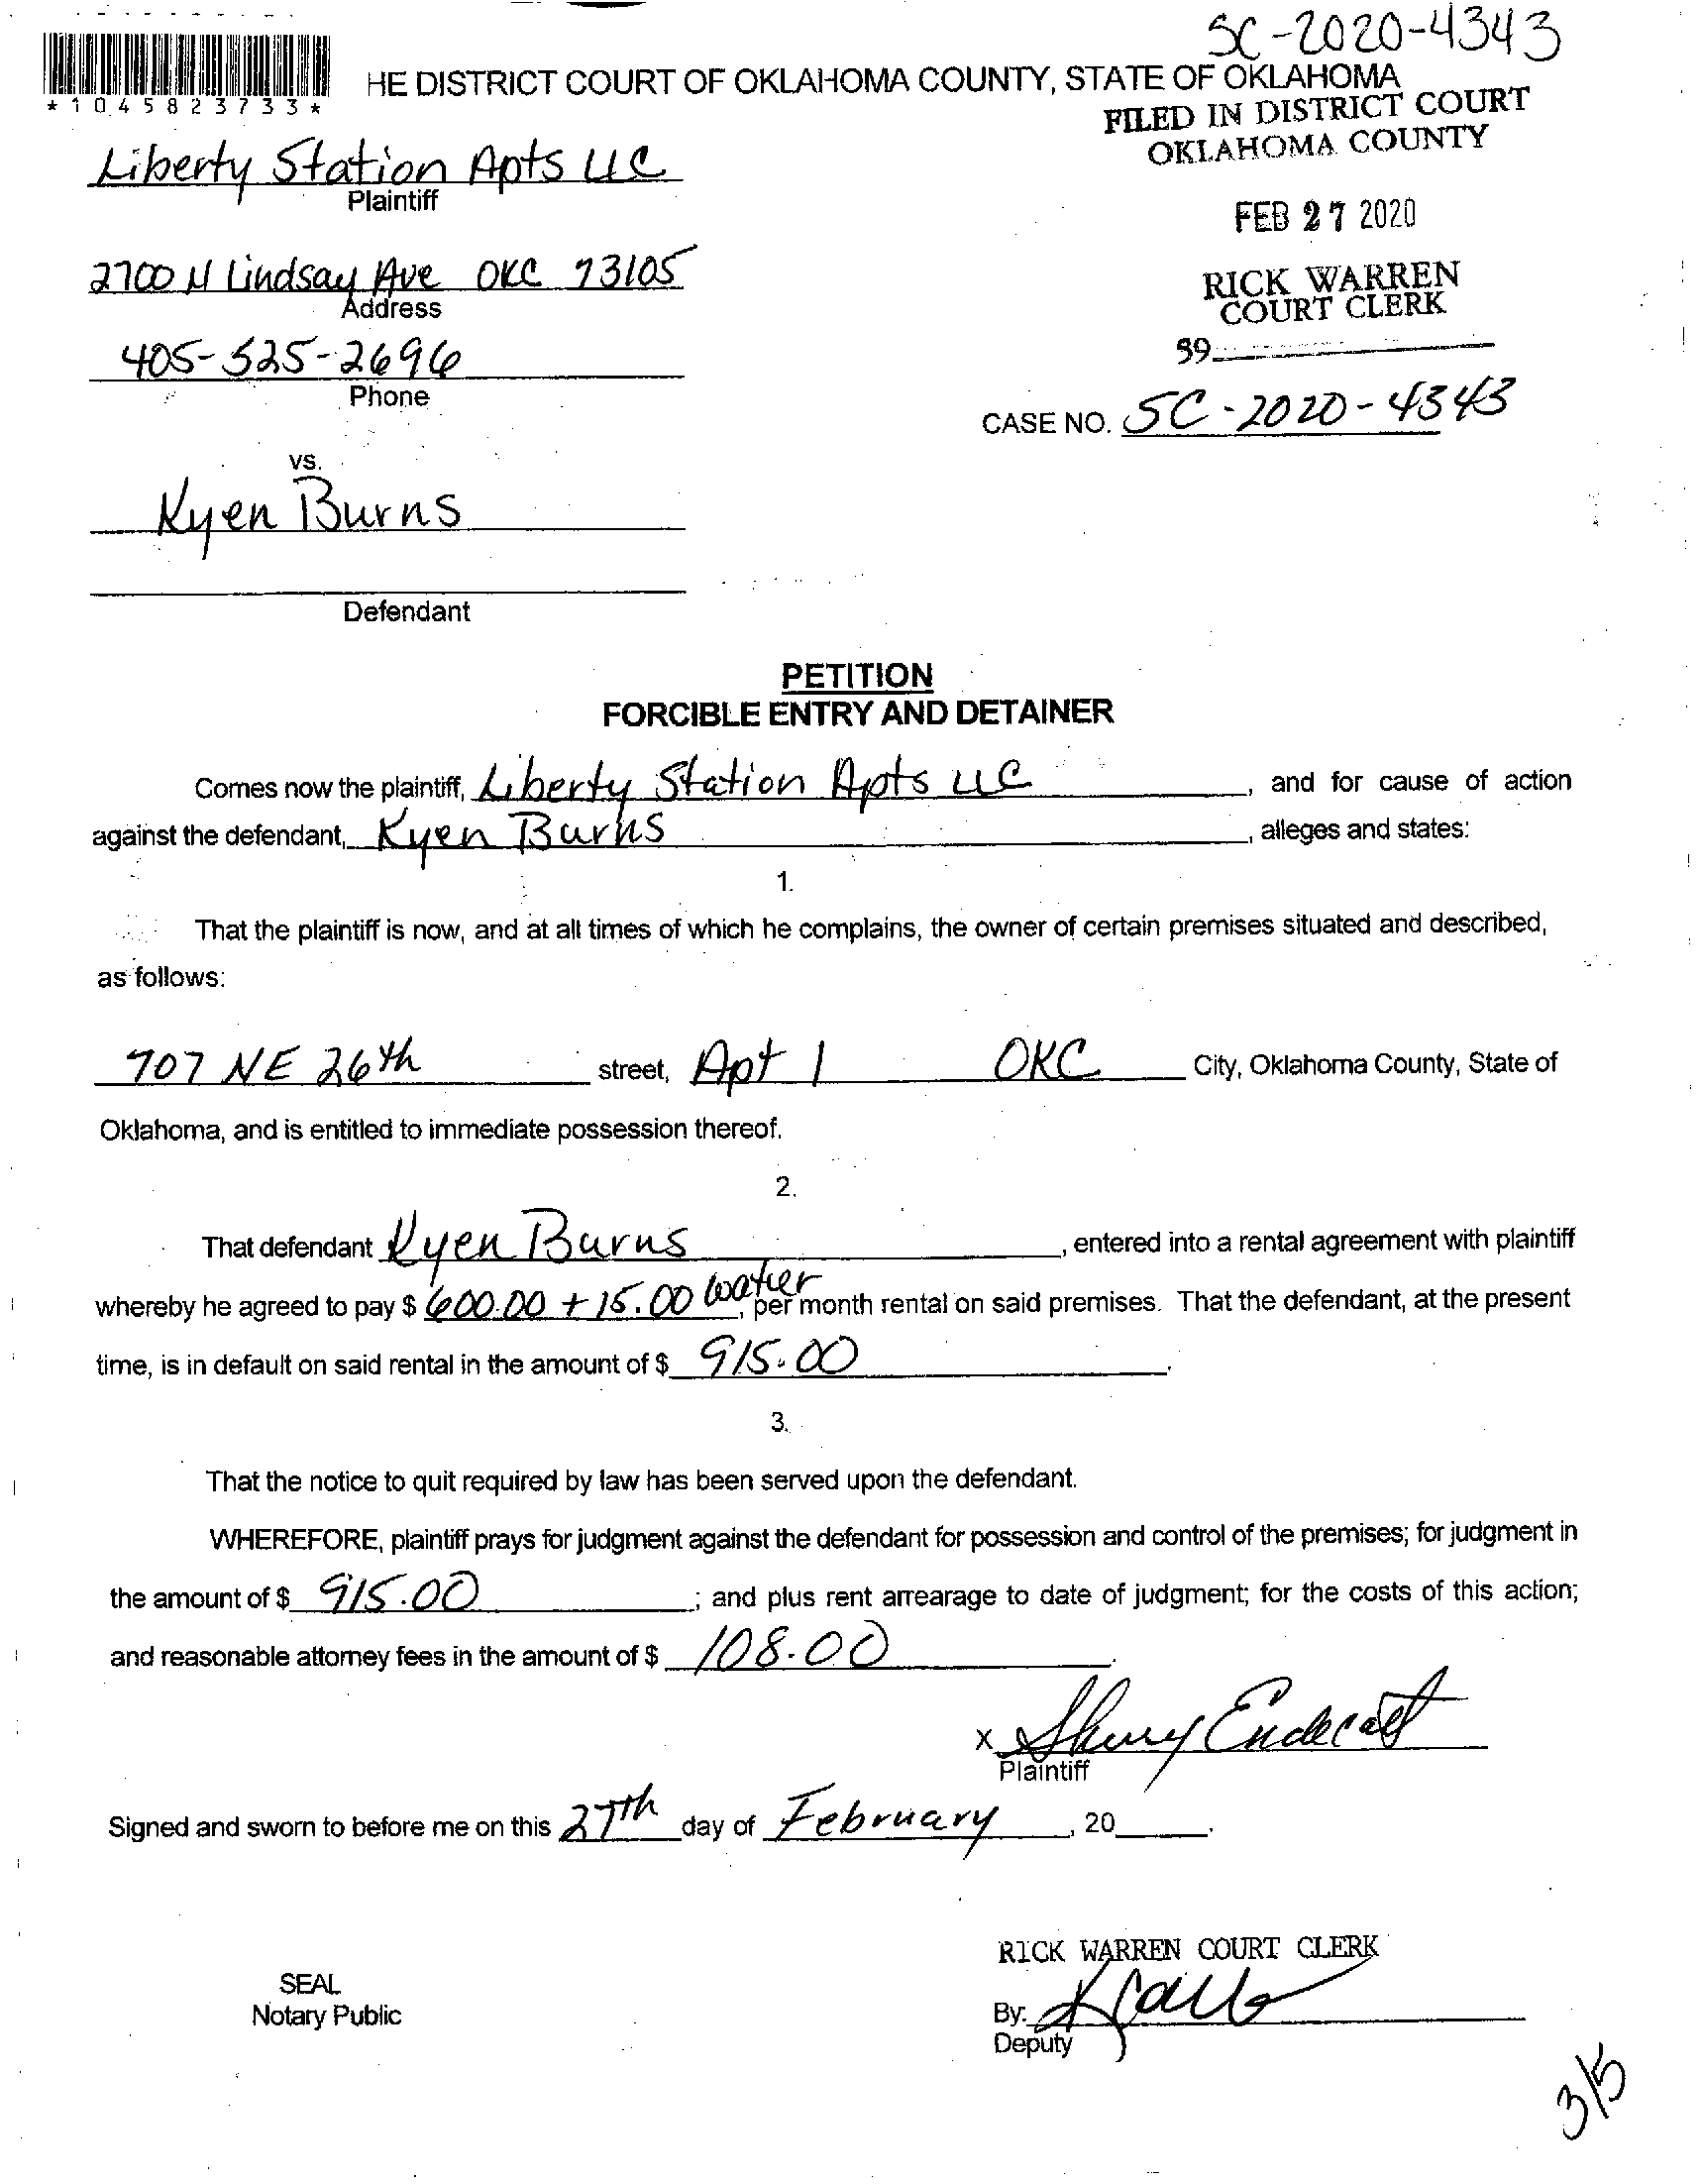 SC-2020-4343
HE DISTRICT COURT OF OKLAHOMA COUNTY, STATE OF OKLAHOMA
*1045823733*
FILED IN DISTRICT COURT
OKLAHOMA COUNTY
Liberty Station Apts LLC
Plaintiff
FEB 27 2020
2700 N Lindsay Ave OKC 73105
Address
RICK WARREN
COURT CLERK
405-525-2696
Phone
39
CASE NO. SC-2020-4343
vs.
Kyen Burns
Defendant
PETITION
FORCIBLE ENTRY AND DETAINER
Comes now the plaintiff, Liberty Station Apts LLC, and for cause of action
against the defendant, Kyen Burns, alleges and states:
1.
That the plaintiff is now, and at all times of which he complains, the owner of certain premises situated and described,
as follows:
707 NE 26th street, Apt 1 OKC City, Oklahoma County, State of
Oklahoma, and is entitled to immediate possession thereof.
2.
That defendant Kyen Burns, entered into a rental agreement with plaintiff
whereby he agreed to pay $ 600.00 + 15.00 water, per month rental on said premises. That the defendant, at the present
time, is in default on said rental in the amount of $ 915.00.
3.
That the notice to quit required by law has been served upon the defendant.
WHEREFORE, plaintiff prays for judgment against the defendant for possession and control of the premises; for judgment in
the amount of $ 915.00; and plus rent arrearage to date of judgment; for the costs of this action;
and reasonable attorney fees in the amount of $ 108.00.
x Sherry Endecott
Plaintiff
Signed and sworn to before me on this 27th day of February, 20.
RICK WARREN COURT CLERK
SEAL
Notary Public
By:
Deputy
3/5